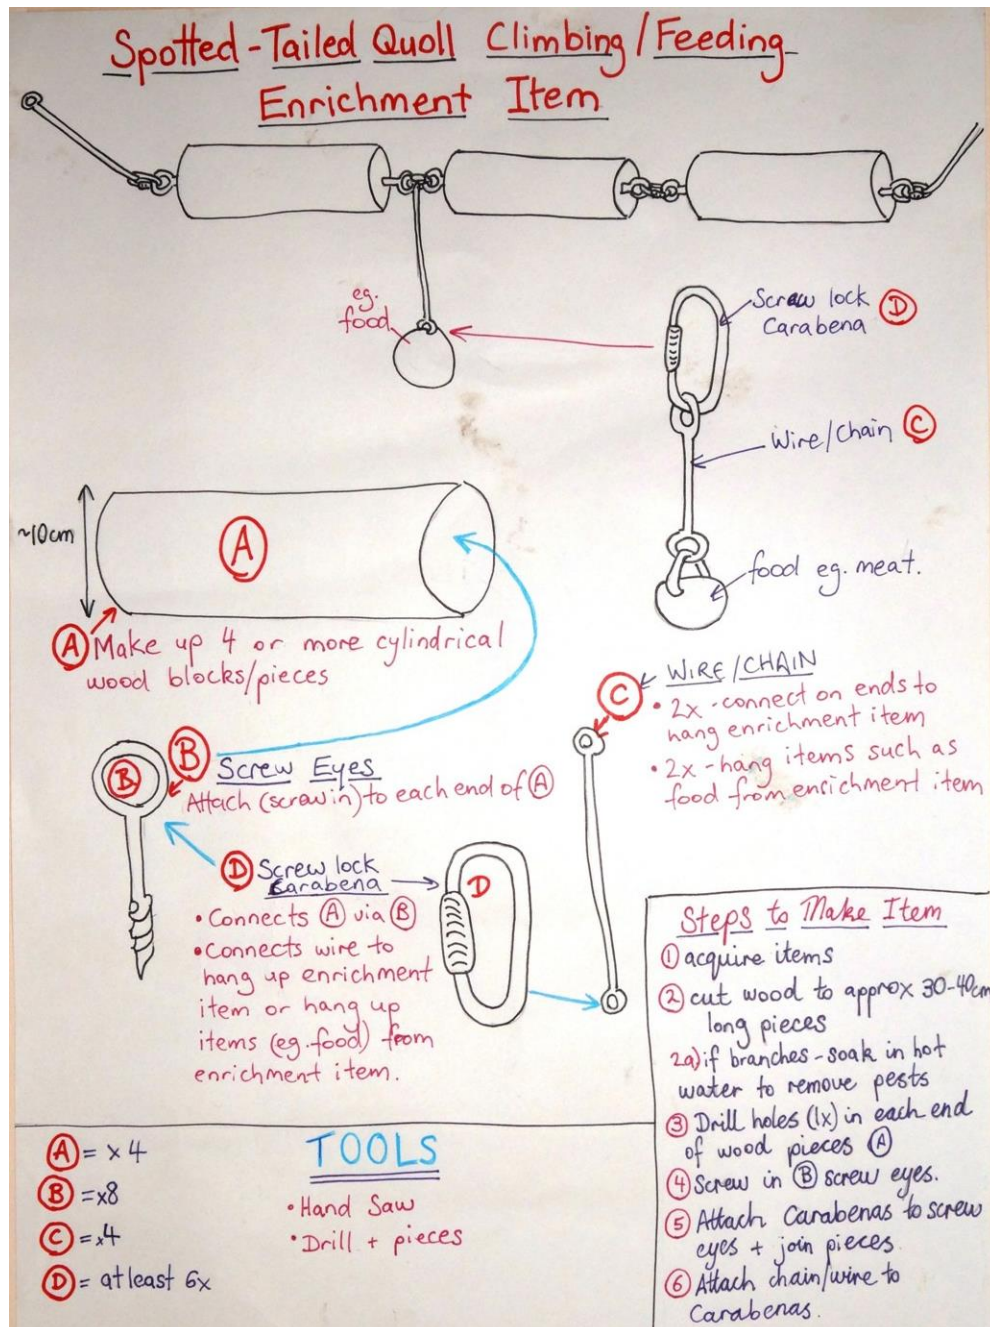 Spotted-Tailed Quoll Climbing/Feeding
Enrichment Item
eg.
food
Screw lock
Carabena
D
Wire/Chain C
food eg. meat.
~10cm
A
A Make up 4 or more cylindrical
wood blocks/pieces
B
B
Screw Eyes
Attach (screw in) to each end of A
C
WIRE/CHAIN
• 2x - connect on ends to
hang enrichment item
• 2x - hang items such as
food from enrichment item
D Screw lock
Carabena
D
• Connects A via B
• Connects wire to
hang up enrichment
item or hang up
items (eg. food) from
enrichment item.
Steps to Make Item
1 acquire items
2 cut wood to approx 30-40cm
long pieces
2a) if branches - soak in hot
water to remove pests
3 Drill holes (1x) in each end
of wood pieces A
4 Screw in B screw eyes.
5 Attach Carabenas to screw
eyes + join pieces.
6 Attach chain/wire to
Carabenas.
A = x4
B = x8
C = x4
D = at least 6x
TOOLS
• Hand Saw
• Drill + pieces